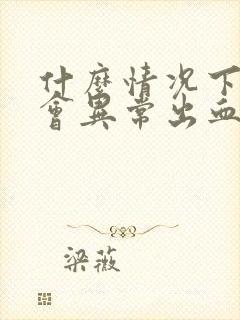 什麼情况下
會異常出血
梁薇